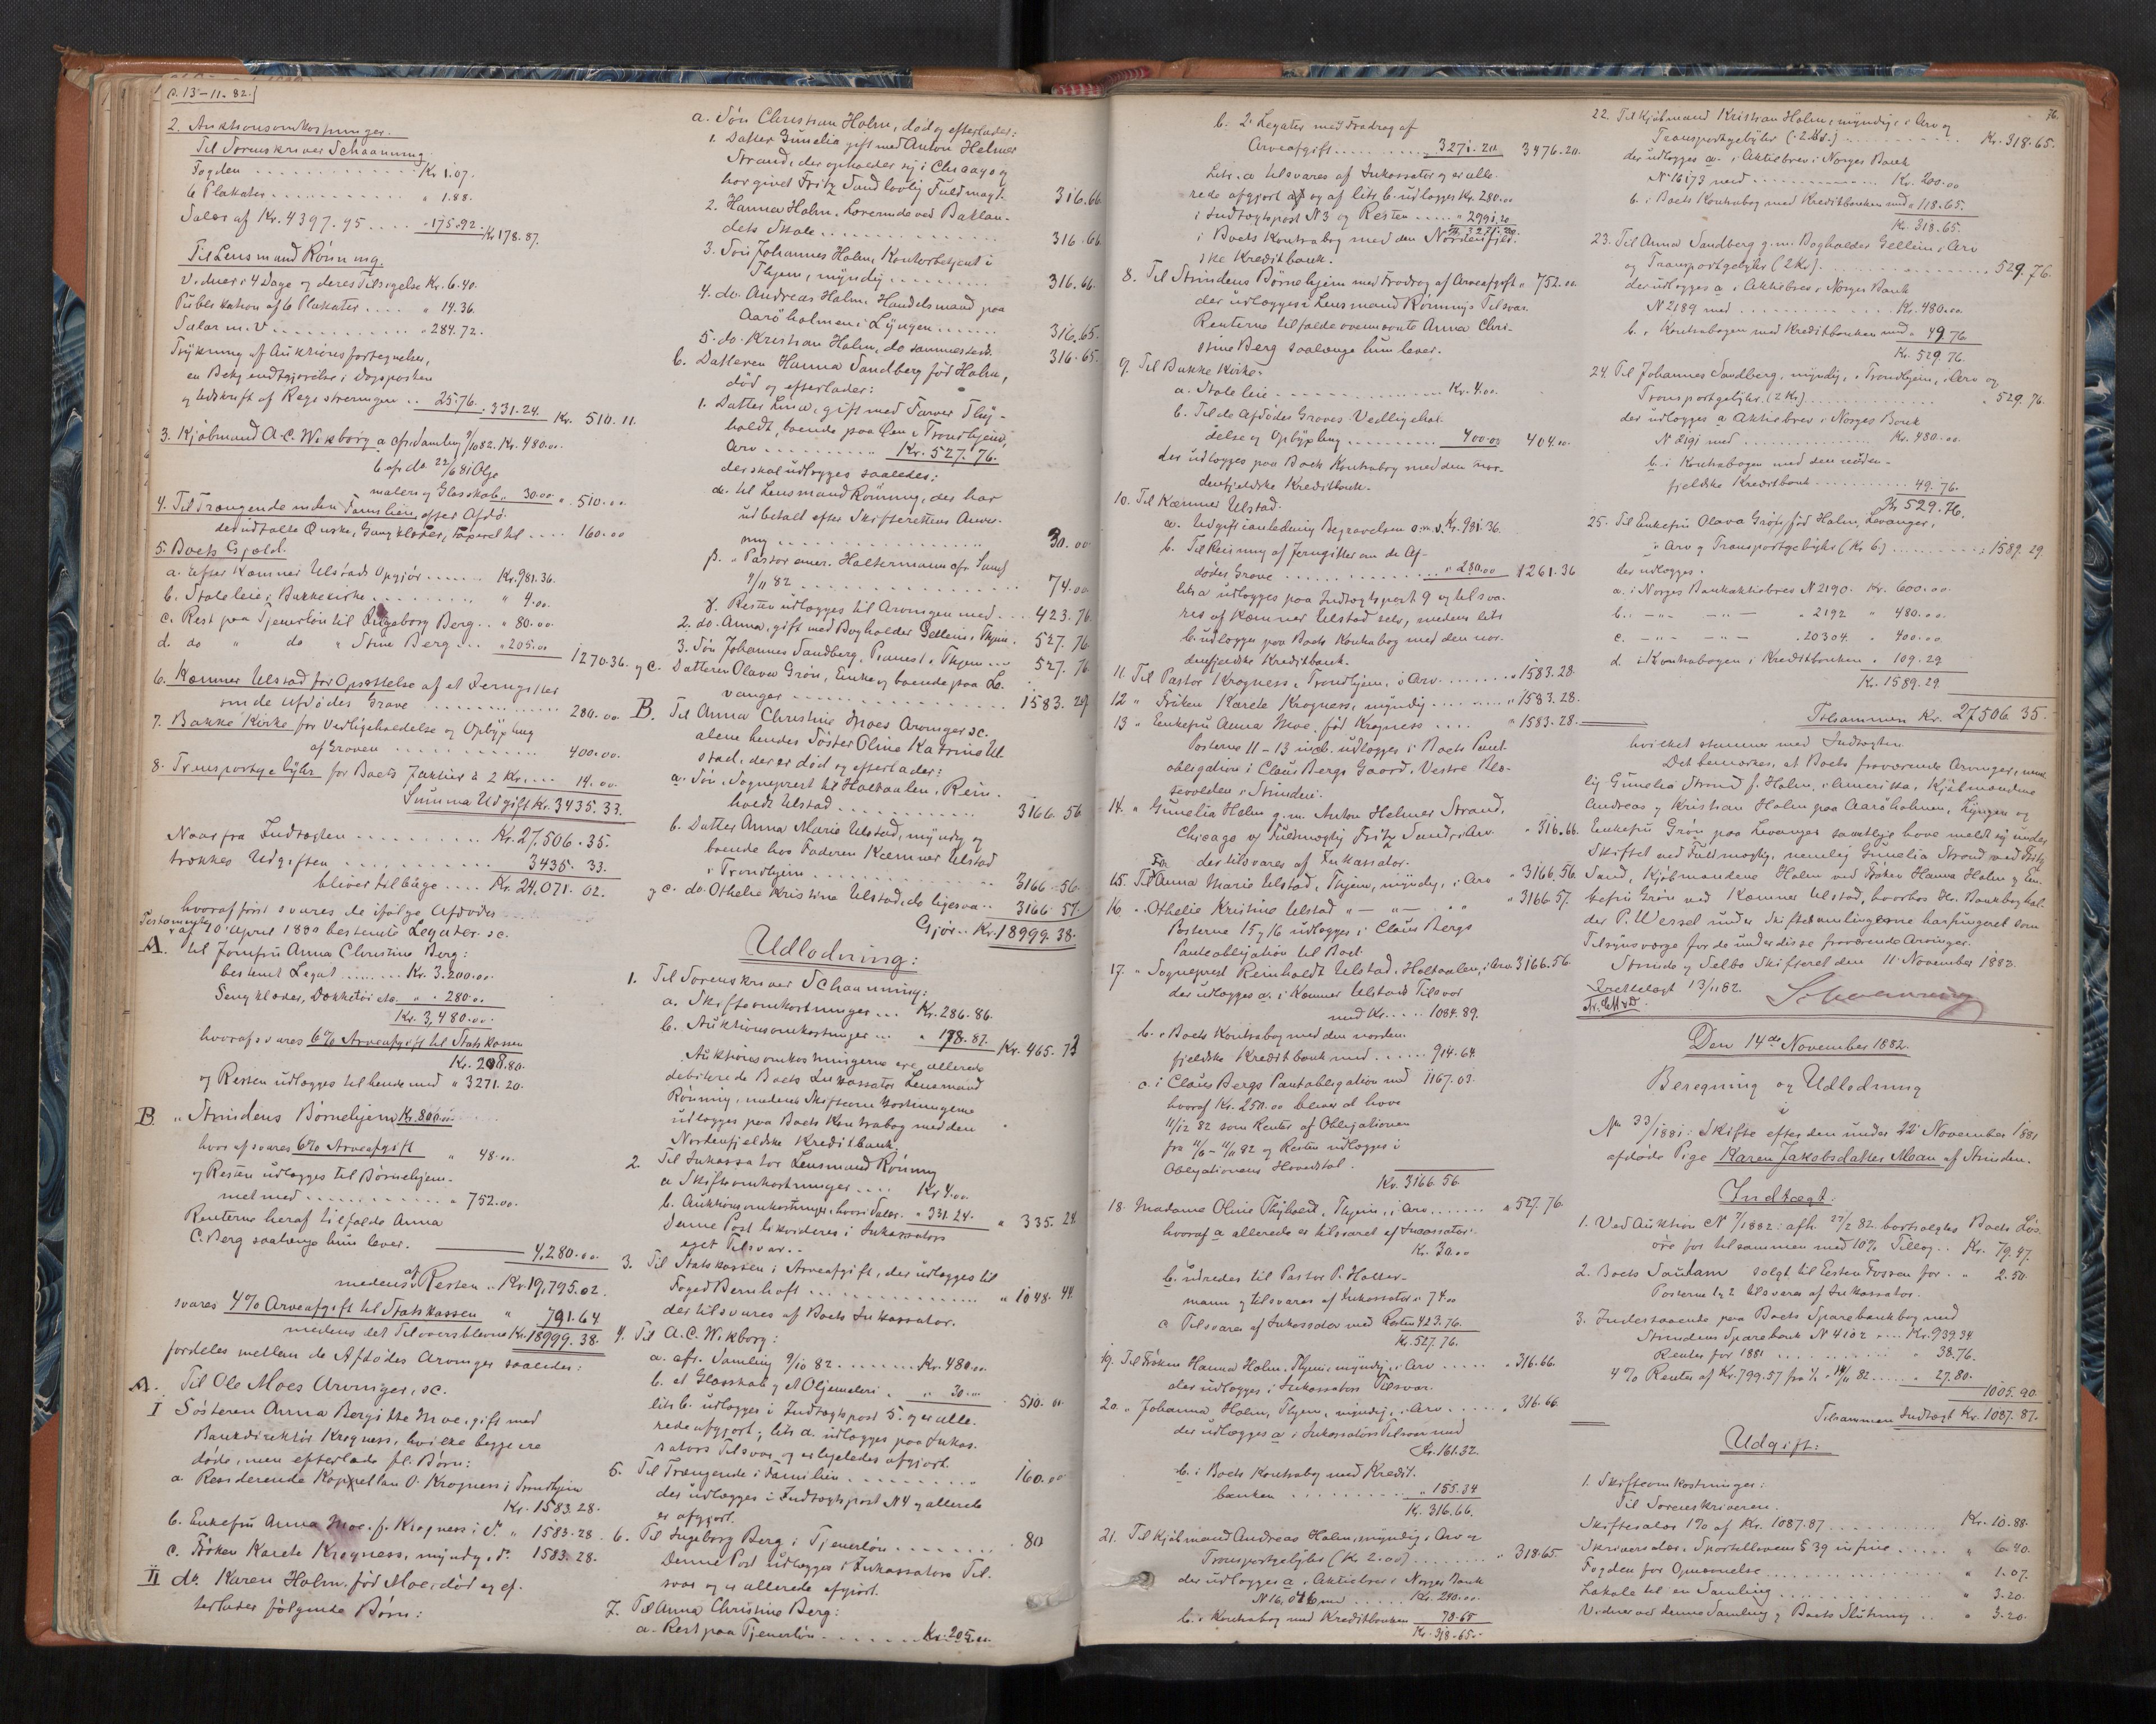 d. 13-11-82.
2. Auktionsomkostninger.
Til Sorenskriver Schaanning.
Fogden ........ Kr 1.07.
6 Plakater ........ " 1.88.
Salær af Kr. 4397.95 .... " 175.92. Kr 178.87.
Til Lensmand Rönning.
Vidner i 4 Dage og deres Tilsigelse Kr. 6.40.
Publikation af 6 Plakater .... " 14.36.
Salær m.v. ........ " 284.72.
Trykning af Auktionsfortegnelse,
en Bekjendtgjörelse i Dagsposten
og Udskrift af Registreringen .. 25.76. " 331.24. Kr. 510.11.
3. Kjöbmand A. C. Wikborg a. efr. Samling 9/10 82. Kr. 480.00.
b. efr. do. 22/6 81 Olje
maleri og Glasskab " 30.00 " 510.00
4. Til Trængende inden Familien efter Afdö-
des udtalte Önske, Gangklæder, Taparet til .... 160.00
5. Boets Gjæld.
a. Efter Kæmner Ulstads Opgjör ...... Kr. 981.36.
b. Stoleleie i Bakkekirke ........ " 4.00.
c. Rest paa Tjenerlön til Ingeborg Berg .. " 80.00
d. do " do " Stine Berg ... " 205.00 1270.36.
6. Kæmner Ulstad for Opsættelse af et Jerngitter
om de Afdödes Grave ........ 280.00
7. Bakke Kirke for Vedligeholdelse og Opbygling
af Graven ........ 400.00.
8. Transportgebyhr for Boets 7 Aktier à 2 Kr. .... 14.00.
Summa Udgift Kr. 3435.33.
Naar fra Indtægten ........ Kr. 27,506.35.
trækkes Udgiften ........ 3435.33.
bliver tilbage .... Kr. 24,071.02.
hvoraf först svares de ifölge Afdödes
Testamente
af 10 April 1880 bestemte Legater. sc.
A. til Jomfru Anna Christine Berg:
bestemt Legat ...... Kr. 3.200.00.
Sengklæder, Dækketöi etc. " 280.00.
Kr. 3,480.00.
hvoraf svares 6% Arveafgift til Statskassen
Kr. 208.80.
og Resten udlægges til hende med " 3271.20.
B. " Strindens Börnehjem Kr. 800.00
hvoraf svares 6% Arveafgift " 48.00.
og Resten udlægges til Börnehjem-
met med ........ " 752.00.
Renterne heraf tilfalde Anna
C. Berg saalænge hun lever. 4,280.00
medens af Resten .. Kr. 19,795.02.
svares 4% Arveafgift til Statskassen " 791.64
medens det Tiloversblevne Kr. 18999.38.
fordeles mellem de Afdödes Arvinger saaledes:
A. Til Ole Moes Arvinger, sc.
I Sösteren Anna Bergitte Moe, gift med
Bankdirektör Krogness, hvilke begge ere
döde, men efterlade fl. Börn:
a. Residerende Kapellan O. Krogness i Trondhjem
Kr. 1583.28.
b. Enkefru Anna Moe f. Krogness i do. " 1583.28.
c. Fröken Karete Krogness, myndig, do. 1583.28.
II do. Karen Holm, föd Moe, död og ef-
terlader fölgende Börn:
a. Sön Christian Holm, död og efterlader:
1. Datter Gunelia gift med Anton Helmer
Strand, der opholder sig i Chicago og
har givet Fritz Sand lovlig Fuldmagt. 316.66
2. Hanna Holm, Lærerinde ved Baklan-
dets Skole ........ 316.66
3. Sön Johannes Holm, Kontorbetjent i
Thjem, myndig ........ 316.66
4. do. Andreas Holm, Handelsmand paa
Aaröholmen i Lyngen ...... 316.65.
5. do. Kristian Holm, do sammesteds 316.65.
b. Datteren Hanna Sandberg föd Holm,
död og efterlader:
1. Datter Lina, gift med Farver Thy-
holdt, boende paa Öen i Trondhjem,
Arv ........ Kr. 527.76.
der skal udlægges saaledes:
α. til Lensmand Rönning, der har
udbetalt efter Skifterettens Anvis-
ning ........ 30.00
β. " Pastor emer. Haltermann efr. Saml
9/11 82 ........ 74.00
γ. Resten udlægges til Arvingen med ... 423.76
2. do. Anna, gift med Bogholder Gellein, Thjem. 527.76
3. Sön Johannes Sandberg, Pianest i Thjem ... 527.76
og c. Datteren Olava Grön, Enke og boende paa Le-
vanger ........ 1583.29
B. Til Anna Christine Moes Arvinger sc.
alene hendes Söster Oline Katrine Ul-
stad, der er död og efterlader:
a. Sön, Sogneprest til Holtaalen, Rein-
holdt Ulstad ........ 3166.56
b. Datter Anna Marie Ulstad, myndig og
boende hos Faderen Kæmner Ulstad
i Trondhjem ........ 3166.56.
og c. do. Othelie Kristine Ulstad, do ligesaa .. 3166.57.
Gjör .. Kr. 18999.38.
Udlodning:
1. Til Sorenskriver Schaanning:
a. Skifteomkostninger ... Kr. 286.86.
b. Auktionsomkostninger ... " 178.87. Kr. 465.73
Auktionsomkostningerne ere allerede
debiterede Boets Inkassator Lensmand
Rönning, medens Skifteomkostningerne
udlægges paa Boets Kontrabog med den
Nordenfjeldske Kreditbank.
2. Til Inkassator Lensmand Rönning
a Skifteomkostninger .... Kr 4.00.
b. Auktionsomkostninger, hvori Salær. " 331.24. " 335.24.
Denne Post likvideres i Inkassators
eget Tilsvar.
3. Til Statskassen i Arveafgift, der udlægges til
Foged Bernhoft ........ " 1048.44.
der tilsvares af Boets Inkassator.
4. Til A. C. Wikborg:
a. efr. Samling 9/10 82 ........ Kr. 480.00
b. et Glasskab og et Oljemaleri " 30.00 510.00
litr b. udlægges i Indtægtspost 5. og er alle-
rede afgjort; litr a. udlægges paa Inkas-
sators Tilsvar og er ligeledes afgjort.
5. Til Trængende i Familien ........ 160.00
der udlægges i Indtægtspost N 4 og allerede
er afgjort.
6. Til Ingeborg Berg i Tjenerlön ........ 80
Denne Post udlægges i Inkassators Til-
svar og er allerede afgjort.
7. Til Anna Christine Berg:
a. Rest paa Tjenerlön ........ Kr. 205.00.
76.
b. 2. Legater med Fradrag af
Arveafgift ........ 3271.20 3476.20.
Litr. a tilsvares af Inkassator og er alle-
rede afgjort og af litr b. udlægges Kr. 280.00
i Indtægtspost N 3 og Resten .... " 2991.20
Kr. 3271.20.
i Boets Kontrabog med den Nordenfjeld-
ske Kreditbank.
8. Til Strindens Börnehjem med Fradrag af Arveafgift " 752.00.
der udlægges i Lensmand Rönnings Tilsvar.
Renterne tilfalde ovennævnte Anna Chri-
stine Berg saalænge hun lever.
9. Til Bakke Kirke:
a. Stoleleie ........ Kr. 4.00.
b. Til de Afdödes Graves Vedligehol-
delse og Opbygling ........ 400.00 404.00.
der udlægges paa Boets Kontrabog med den nor-
denfjeldske Kreditbank.
10. Til Kæmner Ulstad.
a. Udgift i anledning Begravelsen o.m.v. Kr. 981.36.
b. Til Reisning af Jerngitter om de Af-
dödes Grave ........ " 280.00 1261.36
litr a udlægges paa Indtægtspost 9 og tilsva-
res af Kæmner Ulstad selv, medens litr
b. udlægges paa Boets Kontrabog med den nor-
denfjeldske Kreditbank.
11. Til Pastor Krogness i Trondhjem, i Arv ...... " 1583.28.
12 " Fröken Karete Krogness, myndig ........ " 1583.28.
13 " Enkefru Anna Moe, föd Krogness .... " 1583.28.
Posterne 11-13 incl. udlægges i Boets Pant-
obligation i Claus Bergs Gaard, Vestre Ro-
sevolden i Strinden.
14. " Gunelia Holm g.m. Anton Helmer Strand,
Chicago v/ Fuldmægtig Fritz Sand, i Arv. " 316.66.
der tilsvares af Inkassator.
15. Til Fr. Anna Marie Ulstad, Thjem, myndig, i Arv " 3166.56.
16 " Othelie Kristine Ulstad " — " — " " " 3166.57.
Posterne 15 og 16 udlægges i Claus Bergs
Pantobligation til Boet.
17. " Sogneprest Reinholdt Ulstad, Holtaalen, i Arv 3166.56.
der udlægges a. i Kæmner Ulstads Tilsvar
med Kr. .... 1084.89.
b. i Boets Kontrabog med den norden-
fjeldske Kreditbank med ...... 914.64.
c. i Claus Bergs Pantobligation med 1167.03.
hvoraf Kr. 250.00 bliver at hæve
11/12 82 som Renter af Obligationen
fra 11/6 - 11/12 82 og Resten udlægges i
Obligationens Hovedstol.
Kr. 3166.56.
18. Madame Oline Thyholdt, Thjem, i Arv ...... " 527.76.
hvoraf a allerede er tilsvaret af Inkassator.
Kr. 30.00
b. udredes til Pastor P. Halter-
mann og tilsvares af Inkassator " 74.00
c Tilsvares af Inkassator med Resten 423.76.
Kr. 527.76.
19. Til Fröken Hanna Holm, Thjem, myndig, i Arv ..... " 316.66.
der udlægges i Inkassators Tilsvar.
20. " Johannes Holm, Thjem, myndig, i Arv ..... " 316.66.
der udlægges a i Inkassators Tilsvar med
Kr. 161.32.
b. i Boets Kontrabog med Kredit-
banken ........ " 155.34
Kr. 316.66.
21. Til Kjöbmand Andreas Holm, myndig, i Arv og
Transportgebyhr (Kr 2.00) ........ " 318.65.
der udlægges a i Aktiebrev i Norges Bank
N 16,016 med ...... Kr. 240.00
b. i Kontrabog med Kreditbanken 78.65
Kr. 318.65.
22. Til Kjöbmand Kristian Holm, myndig, i Arv og
Transportgebyhr (2 Kr.) ........ Kr. 318.65.
der udlægges a. i Aktiebrev i Norges Bank
N 16173 med ........ Kr. 200.00
b. i Boets Kontrabog med Kreditbanken med " 118.65.
Kr. 318.65.
23. Til Anna Sandberg g.m. Bogholder Gellein i Arv
og Transportgebyhr (2 Kr.) ........ 529.76.
der udlægges a i Aktiebrev i Norges Bank
N 2189 med ........ Kr. 480.00
b. i Kontrabogen med Kreditbanken med " 49.76
Kr. 529.76.
24. Til Johannes Sandberg, myndig, i Trondhjem, i Arv og
Transportgebyhr (2 Kr) ........ " 529.76.
der udlægges a Aktiebrev i Norges Bank
N 2191 med ........ Kr. 480.00
b. i Kontrabogen med den norden-
fjeldske Kreditbank ........ 49.76.
Kr 529.76.
25. Til Enkefru Olava Grön, föd Holm, Levanger,
i Arv og Transportgebyhr (Kr 6.) ........ " 1589.29.
der udlægges.
a. i Norges Bankaktiebrev N 2190. Kr. 600.00.
b. - " - - " - 2192 " 480.00.
c. - " - - " - 20304. " 400.00.
d. i Kontrabogen i Kreditbanken " 109.29
Kr. 1589.29
Tilsammen Kr. 27506.35.
hvilket stemmer med Indtægten.
Det bemærkes, at Boets fraværende Arvinger, nem-
lig Gunelia Strand f. Holm, i Amerika, Kjöbmændene
Andreas og Kristian Holm paa Aaröholmen, Lyngen og
Enkefru Grön paa Levanger samtlige have meldt sig under
Skiftet ved Fuldmægtig, nemlig Gunelia Strand ved Fritz
Sand, Kjöbmændene Holm ved Fröken Hanna Holm og En-
kefru Grön ved Kæmner Ulstad, hvorhos Hr. Bankboghol-
der P. Wessel under Skiftesamlingerne har fungeret som
Tilsynsværge for de under disse fraværende Arvinger.
Strinde og Selbo Skifteret den 11 November 1882.
Fremlagt 13/11 82. Schaanning
Den 14de November 1882.
Beregning og Udlodning
i
No 33/1881: Skifte efter den under 22 November 1881
afdöde Pige Karen Jakobsdatter Moan af Strinden.
Indtægt.
1. Ved Auktion N 7/1882: afh. 27/2 82. bortsolgtes Boets Lös-
öre for tilsammen med 10% Tillæg .. Kr. 79.47.
2. Boets Saulam solgt til Esten Fossen for . " 2.50.
Posterne 1 og 2 tilsvares af Inkassator.
3. Indestaaende paa Boets Sparebankbog med
Strindens Sparebank N 4102 .... Kr. 939.34
Renter for 1881 ........ " 38.76.
4% Renter af Kr. 799.57 fra 1/1 - 14/11 82 ..... " 27.80.
1005.90.
Tilsammen Indtægt Kr. 1087.87.
Udgift:
1. Skifteomkostninger:
Til Sorenskriveren.
Skiftesalær 1% af Kr. 1087.87 ........ Kr. 10.88.
Skriversalær, Sportellovens § 39 in fine ..... " 6.40.
Fogden for Opnævnelse ........ " 1.07.
Lokale til en Samling ........ " 3.20.
Vidner ved denne Samling og Boets Slutning .. " 3.20.